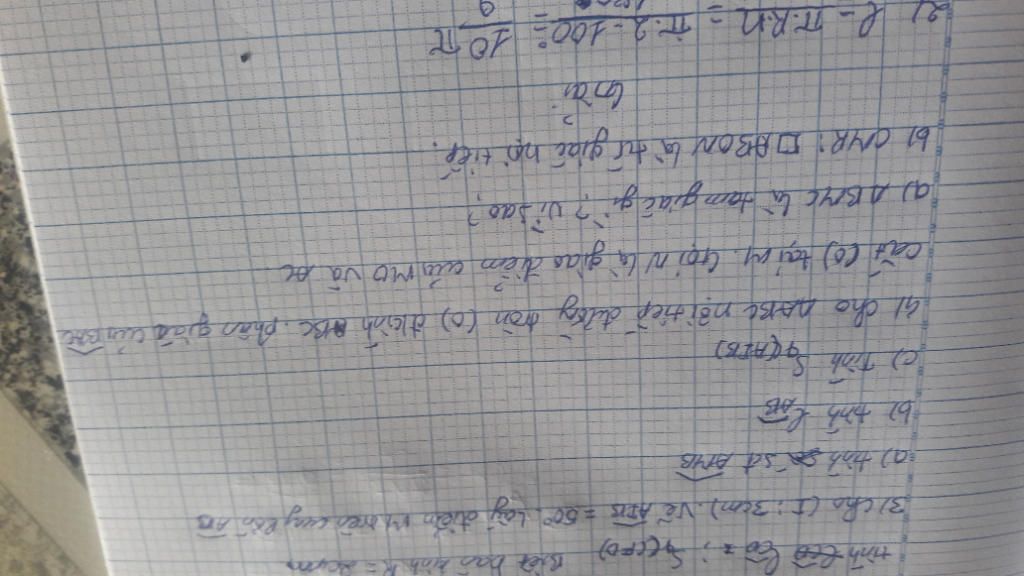 tính l⌢CD = ; Sq(CFD) Biết bán kính R = 2cm
3) cho (I; 3cm). Vẽ AIB = 50°. Lấy điểm M trên cung lớn AB
a) tính sđ AMB
b) tính lAB
c) Tính Sq(AIB)
4) Cho ΔABC nội tiếp đường tròn (O) đkính BC. phân giác của BAC
cắt (O) tại M. Gọi N là giao điểm của MO và AC
a) ΔBMC là tam giác gì? Vì sao?
b) CMR: □ABON là tứ giác nội tiếp.
Giải
2) l = π.R.n = π.2.100° = 10π
9